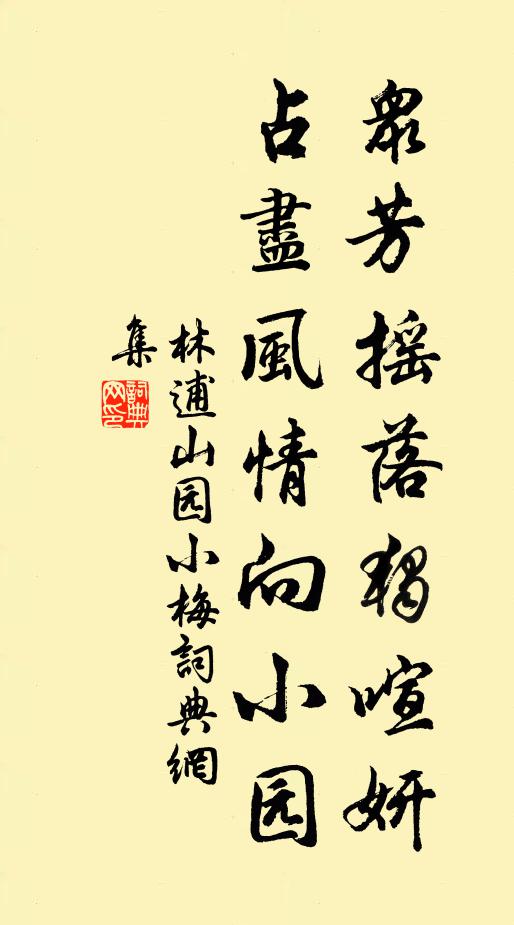 眾芳摇落獨喧妍
占盡風情向小园
林逋山园小梅詞典網
集
詞典网印